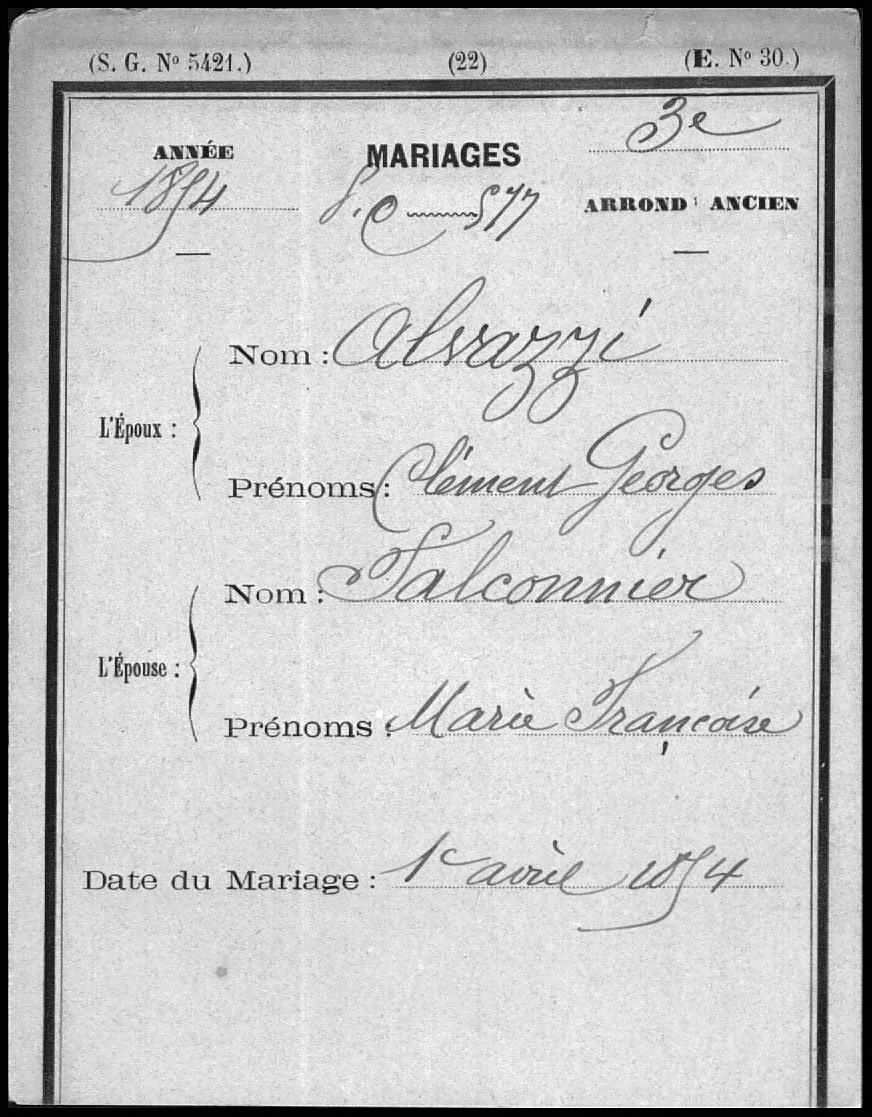 (S. G. Nº 5421.) (22) (E. Nº 30.)
ANNÉE MARIAGES 3e
1854 577 ARRONDt ANCIEN
L'Époux :
Nom : Alvazzi
Prénoms : Clément Georges
L'Épouse :
Nom : Falconnier
Prénoms : Marie Françoise
Date du Mariage : 1er avril 1854